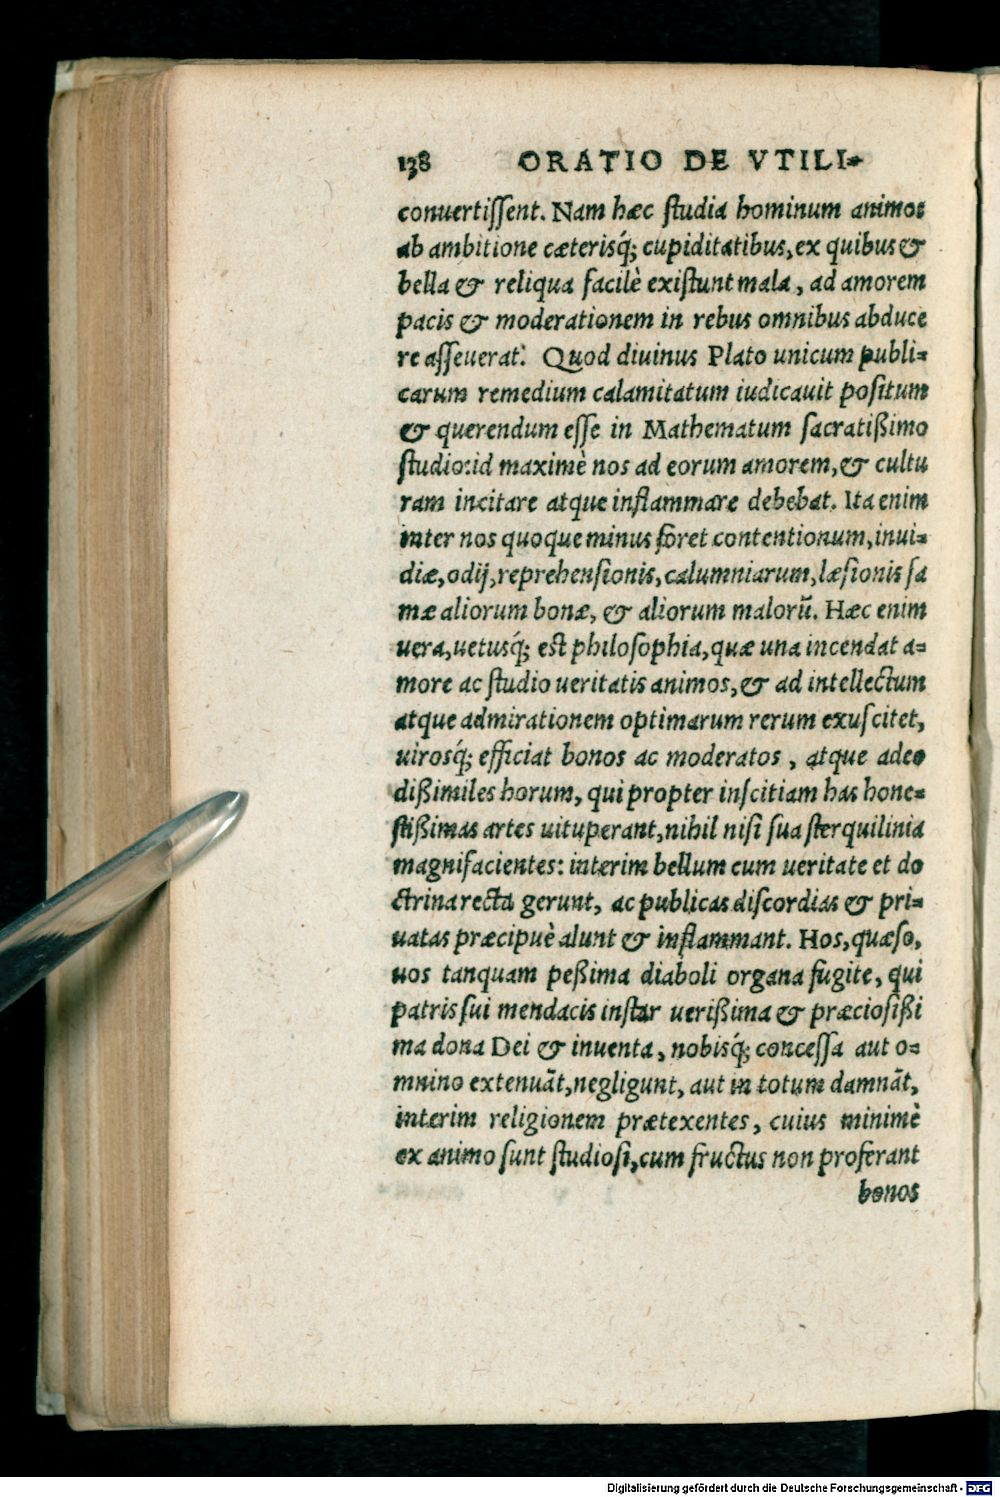 138 ORATIO DE VTILI-
conuertissent. Nam hæc studia hominum animos
ab ambitione cæterisq́; cupiditatibus, ex quibus &
bella & reliqua facilè existunt mala, ad amorem
pacis & moderationem in rebus omnibus abduce
re asseuerat. Quod diuinus Plato unicum publi-
carum remedium calamitatum iudicauit positum
& querendum esse in Mathematum sacratißimo
studio: id maximè nos ad eorum amorem, & cultu
ram incitare atque inflammare debebat. Ita enim
inter nos quoque minus foret contentionum, inui-
diæ, odij, reprehensionis, calumniarum, læsionis fa
mæ aliorum bonæ, & aliorum malorũ. Hæc enim
uera, uetusq́; est philosophia, quæ una incendat a-
more ac studio ueritatis animos, & ad intellectum
atque admirationem optimarum rerum exuscitet,
uirosq́; efficiat bonos ac moderatos, atque adeo
dißimiles horum, qui propter inscitiam has hone-
stißimas artes uituperant, nihil nisi sua sterquilinia
magnifacientes: interim bellum cum ueritate et do
ctrina recta gerunt, ac publicas discordias & pri-
uatas præcipuè alunt & inflammant. Hos, quæso,
uos tanquam peßima diaboli organa fugite, qui
patris sui mendacis instar uerißima & præciosißi
ma dona Dei & inuenta, nobisq́; concessa aut o-
mnino extenuãt, negligunt, aut in totum damnãt,
interim religionem prætexentes, cuius minimè
ex animo sunt studiosi, cum fructus non proferant
bonos
Digitalisierung gefördert durch die Deutsche Forschungsgemeinschaft - DFG